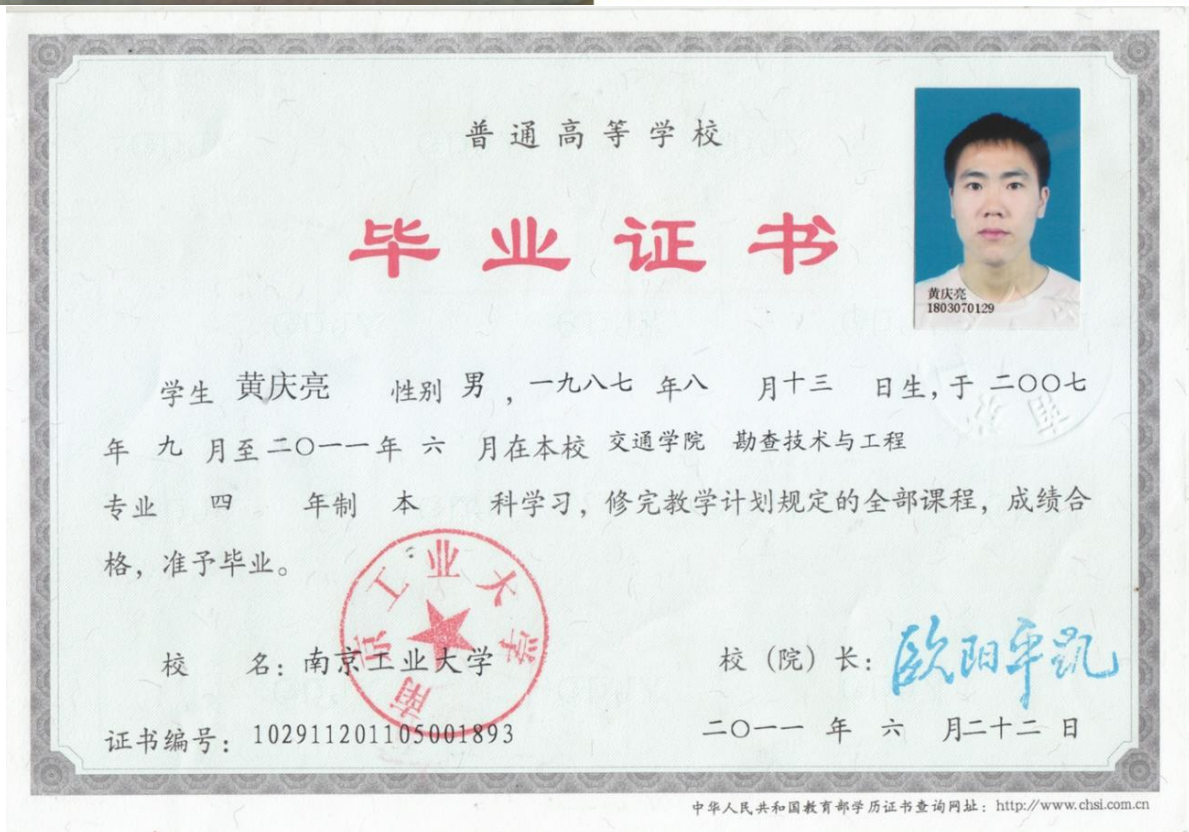 普通高等学校
毕业证书
黄庆亮
1803070129
学生 黄庆亮 性别 男，一九八七 年八 月十三 日生，于 二〇〇七
年 九 月至二〇一一年 六 月在本校 交通学院 勘查技术与工程
专业 四 年制 本 科学习，修完教学计划规定的全部课程，成绩合
格，准予毕业。
南京工业大学
校 名：南京工业大学
校（院）长：欧阳平凯
证书编号：102911201105001893
二〇一一 年 六 月二十二 日
中华人民共和国教育部学历证书查询网址：http://www.chsi.com.cn